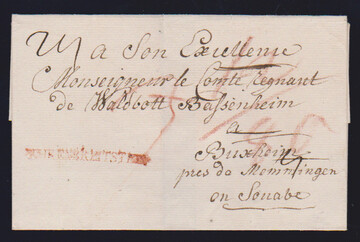 a Son Excellence
Monseigneur le Comte regnant
de Waldbott Bassenheim
a
Buxheim
pres de Memmingen
en Souabe